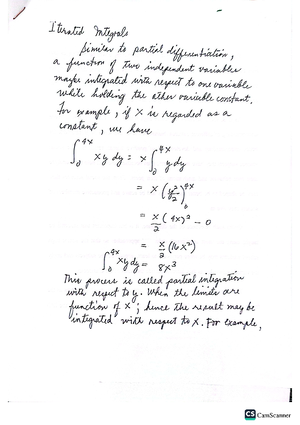 Iterated Integrals
Similar to partial differentiation,
a function of two independent variables
maybe integrated with respect to one variable
while holding the other variable constant.
For example, if x is regarded as a
constant, we have
∫₀^{4x} xy dy = x ∫₀^{4x} y dy
= x (y²/2)₀^{4x}
= x/2 (4x)² - 0
= x/2 (16x²)
∫₀^{4x} xy dy = 8x³
This process is called partial integration
with respect to y. When the limits are
function of x; hence the result may be
integrated with respect to x. For example,
CS CamScanner